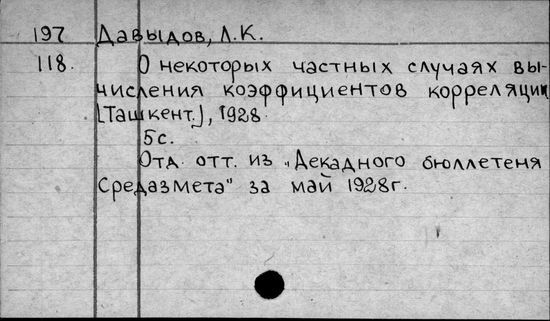 197 Давыдов, Л.К.
118. О некоторых частных случаях вы-
числения коэффициентов корреляции
[Ташкент.], 1928
5с.
Отд. отт. из „Декадного бюллетеня
Средазмета" за май 1928г.